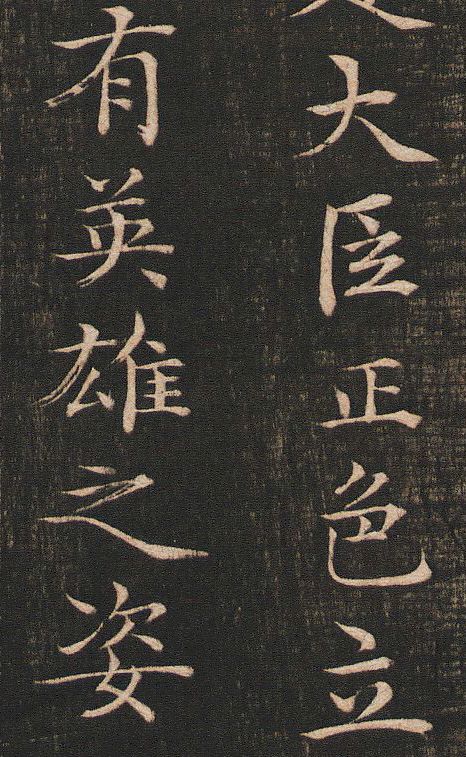 大臣正色立
有英雄之姿